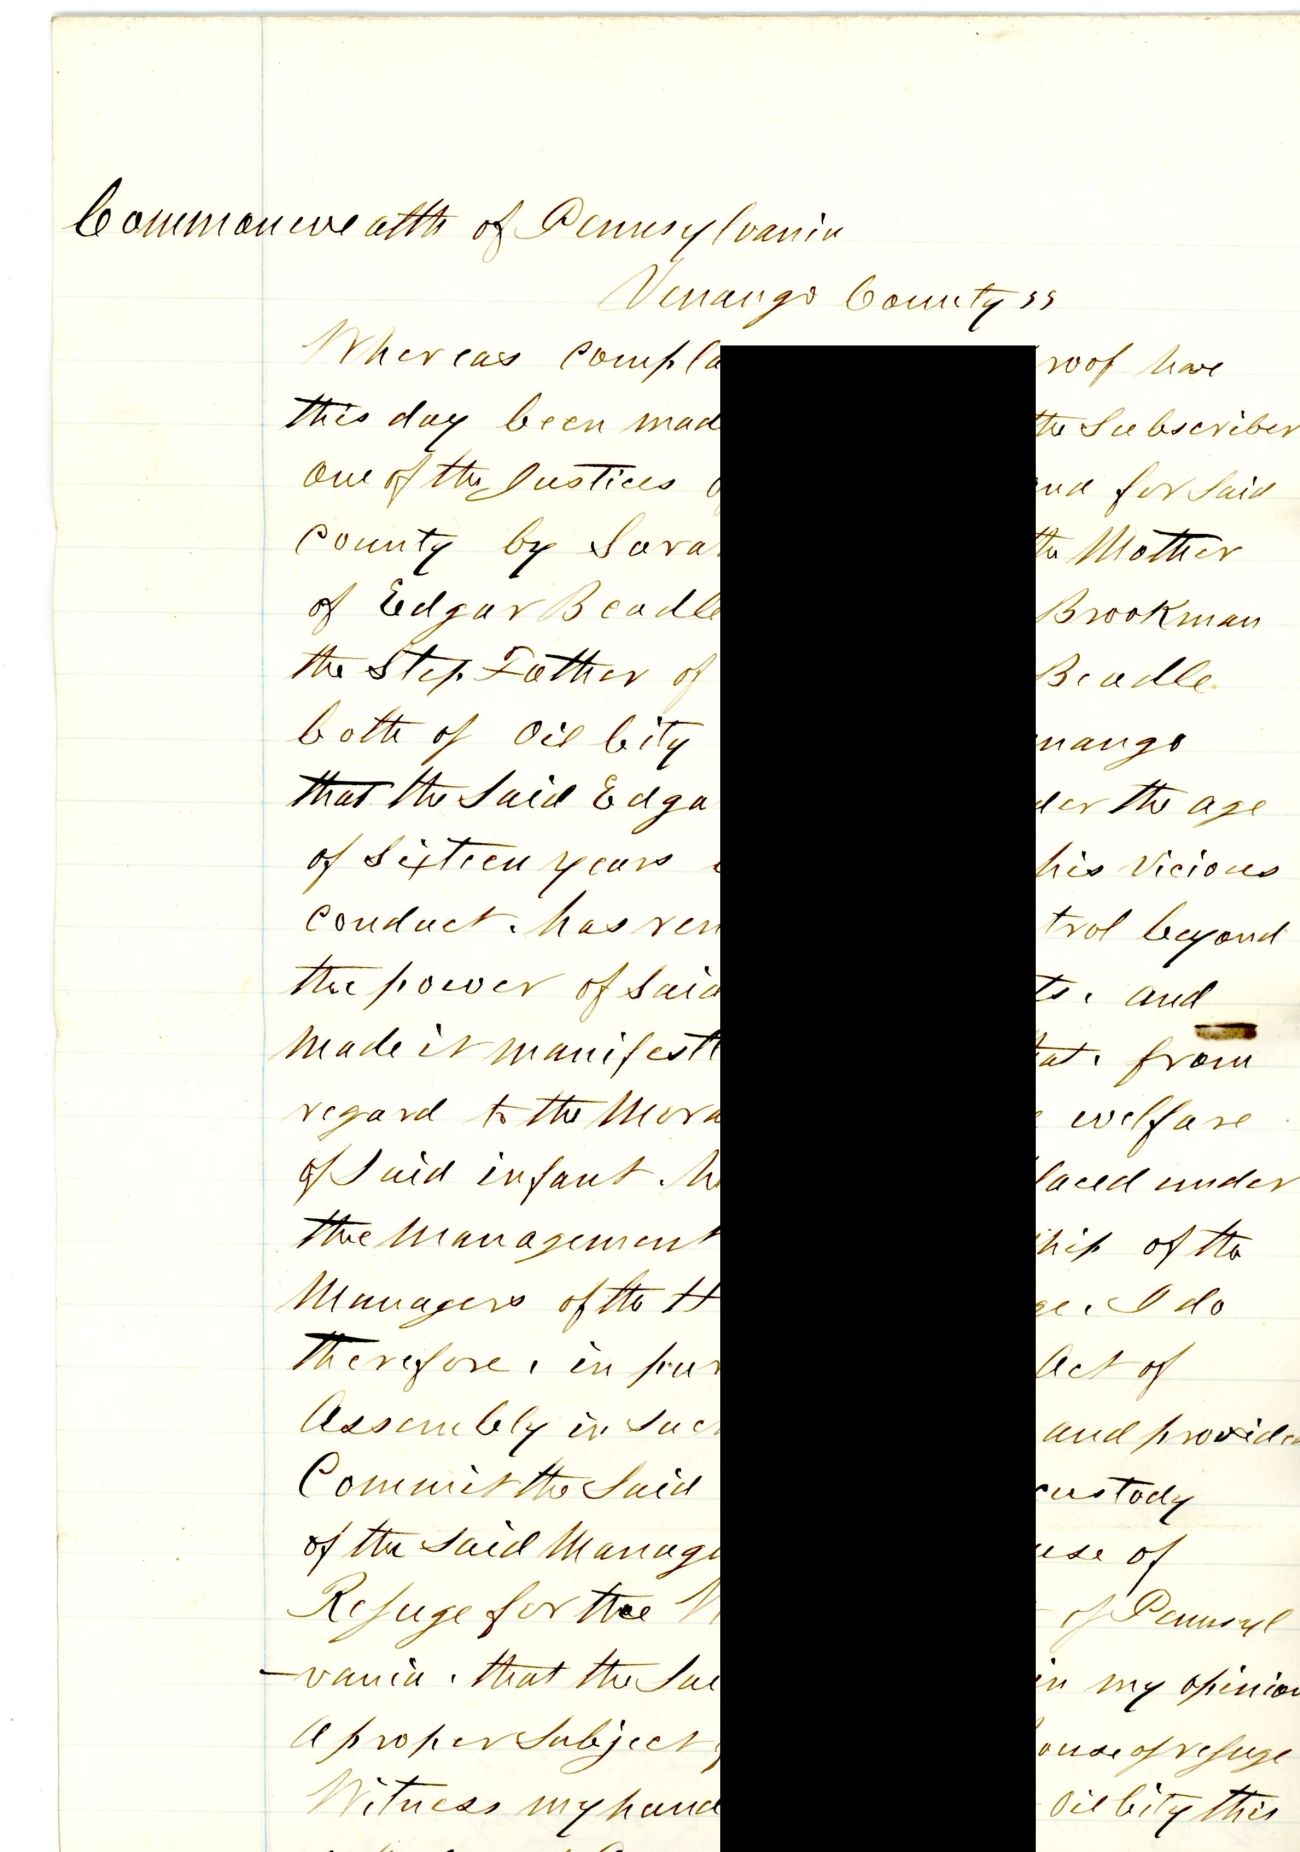 Commonwealth of Pennsylvania
Venango County ss
Whereas compla roof have
this day been mad the Subscriber
One of the Justices o and for Said
County by Sara the Mother
of Edgar Beadle Brookman
the Step Father of Beadle
both of Oil City nango
that the Said Edga der the age
of Sixteen years his Vicious
Conduct. has ren trol beyond
the power of Said ts. and
Made it manifestl hat. from
regard to the Mora welfare
of Said infant. he laced under
the Management ship of the
Managers of the H ge. I do
therefore, in pur Act of
Assembly in Suc and provided
Commit the Said custody
of the Said Manage use of
Refuge for the W of Pennsyl
-vania. that the Sai in my opinion
A proper Subject ouse of refuge
Witness my hand Oil City this